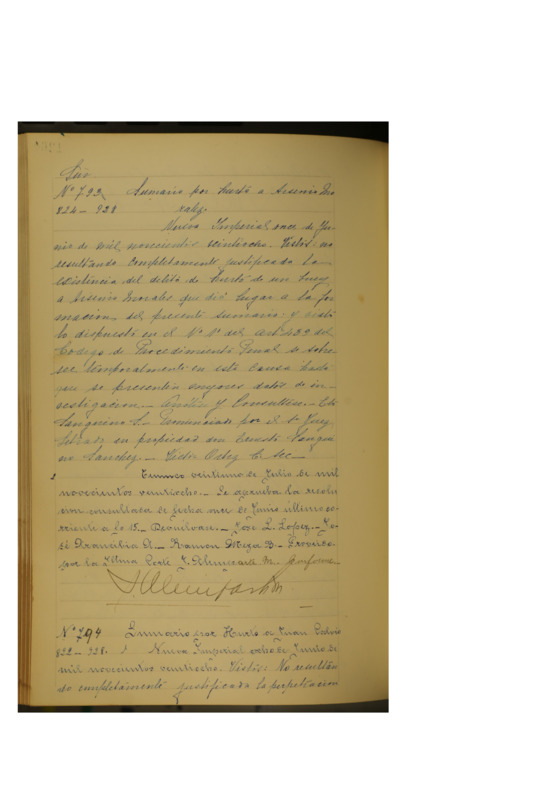 Nº 793 Sumario por hurto a Arsenio Mo
824 - 928 rales.
Nueva Imperial once de Ju-
nio de mil novecientos veintiocho. Vistos: no
resultando completamente justificada la
existencia del delito de hurto de un buey
a Arsenio Morales que dió lugar a la for
macion del presente sumario: y visto
lo dispuesto en el Nº 1º del art. 432 del
Código de Procedimiento Penal se sobre-
see temporalmente en esta causa hasta
que se presenten mejores datos de in-
vestigacion. - Anótese y Consúltese. -
Sanguino S. - Pronunciado por el Juez
Letrado en propiedad don Ernesto Sangui
no Sanchez. - Victor C. Sec -
Temuco veintiuno de Julio de mil
novecientos veintiocho. - Se aprueba la resolu
cion consultada de fecha once de Junio último co-
rriente a fs 15. - Devuélvase. - José L. Lopez. - Jo-
sé A. - Ramon Meza B. - Proveido
por la Iltma Corte Y. M. Conforme
Nº 794 Sumario por Hurto a Juan
822 - 928. Nueva Imperial ocho de Junio de
mil novecientos veintiocho. Vistos: No resultan
do completamente justificada la perpetracion